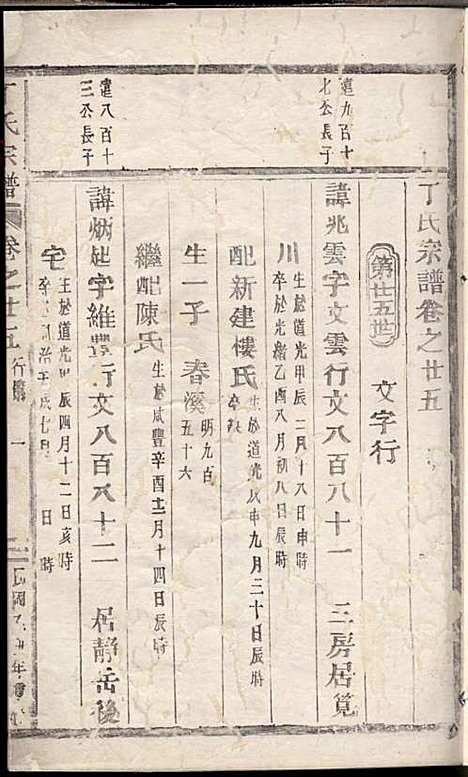 丁氏宗譜卷之廿五
第廿五世
文字行
遠九百十
七公長子
諱兆雲字文雲行文八百八十一 三房居筧
川 生於道光甲辰二月十八日申時
卒於光緒乙酉八月初八日辰時
配新建樓氏 生於道光戊申九月三十日辰時
卒缺
生一子 春溪 明九百
五十六
繼配陳氏 生於咸豐辛酉十二月十四日辰時
遠八百十
三公長子
諱炳 字維豐行文八百八十二 居靜岳後
宅 生於道光甲辰四月十二日亥時
日 時
丁氏宗譜
卷之廿五 行傳 一
民國 年